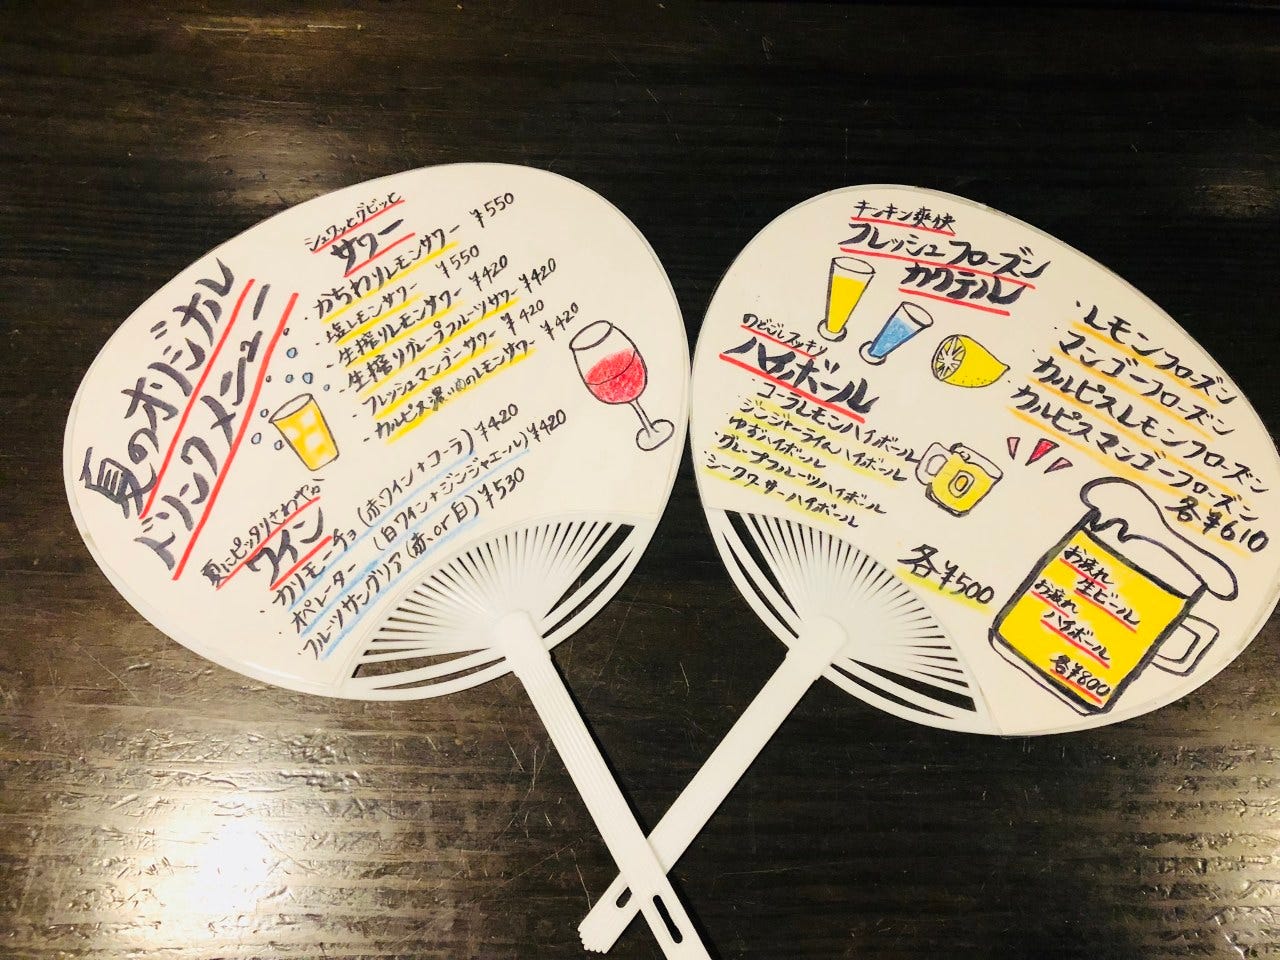 夏のオリジナル
ドリンクメニュー
シュワッとグビッと
サワー
・かちわりレモンサワー ¥550
・塩レモンサワー ¥550
・生搾りレモンサワー ¥420
・生搾りグレープフルーツサワー ¥420
・フレッシュマンゴーサワー ¥420
・カルピス濃いめのレモンサワー ¥420
夏にピッタリさわやか
ワイン
・カリモーチョ(赤ワイン+コーラ) ¥420
・オペレーター(白ワイン+ジンジャエール) ¥420
・フルーツサングリア(赤or白) ¥530
キンキン爽快
フレッシュフローズン
カクテル
・レモンフローズン
・マンゴーフローズン
・カルピスレモンフローズン
・カルピスマンゴーフローズン
各¥610
のどごしスッキリ
ハイボール
・コーラレモンハイボール
・ジンジャーライムハイボール
・ゆずハイボール
・グレープフルーツハイボール
・シークワーサーハイボール
各¥500
お疲れ
生ビール
お疲れ
ハイボール
各¥800